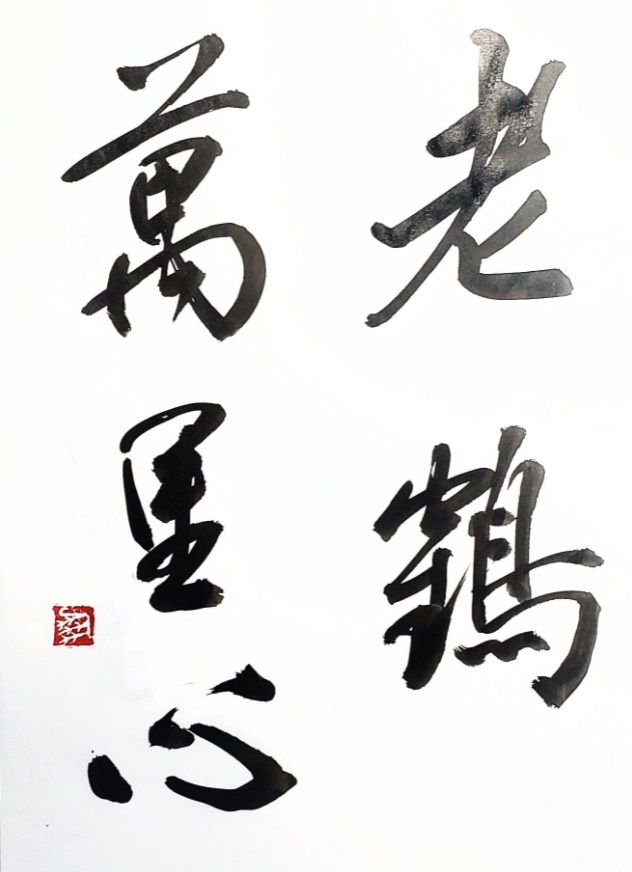 老鶴
萬里心